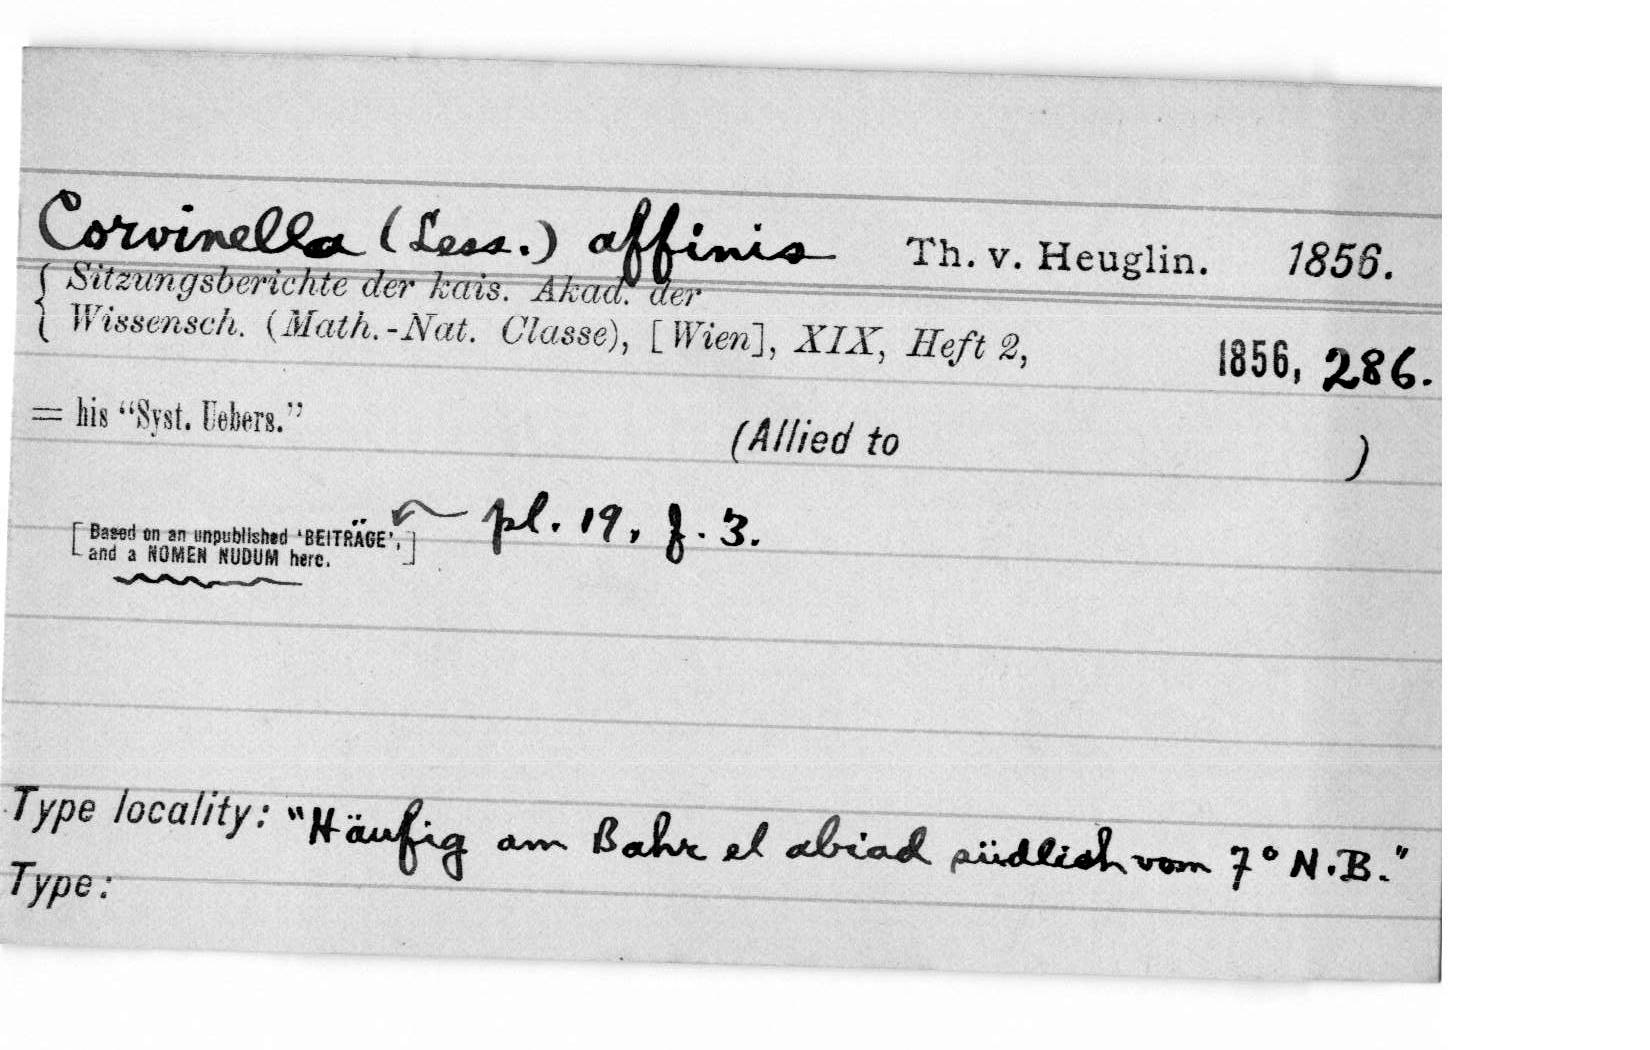 Corvinella (Less.) affinis Th. v. Heuglin. 1856.
Sitzungsberichte der kais. Akad. der
Wissensch. (Math.-Nat. Classe), [Wien], XIX, Heft 2, 1856, 286.
= his “Syst. Uebers.”
(Allied to )
pl. 19, f. 3.
[Based on an unpublished ‘BEITRÄGE’,
and a NOMEN NUDUM here.]
Type locality: "Häufig am Bahr el abiad südlich vom 7° N.B."
Type: